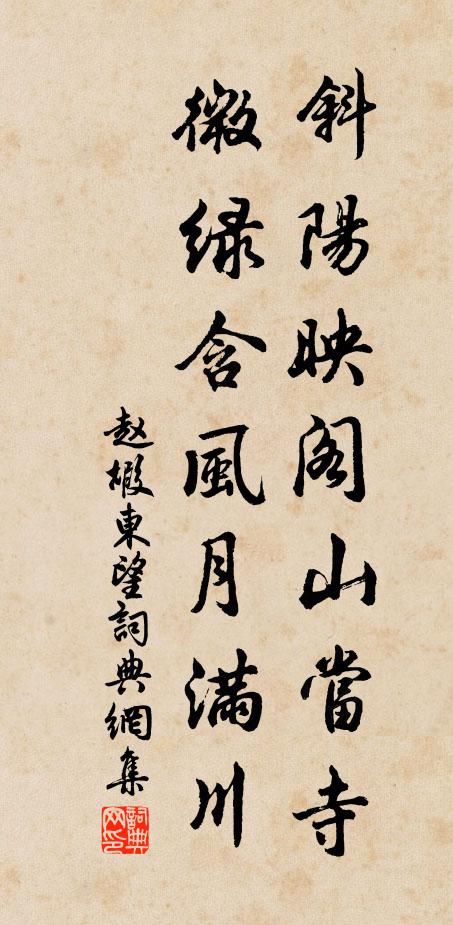 斜陽映阁山當寺
微绿含風月满川
赵嘏東望詞典網集
詞典网印